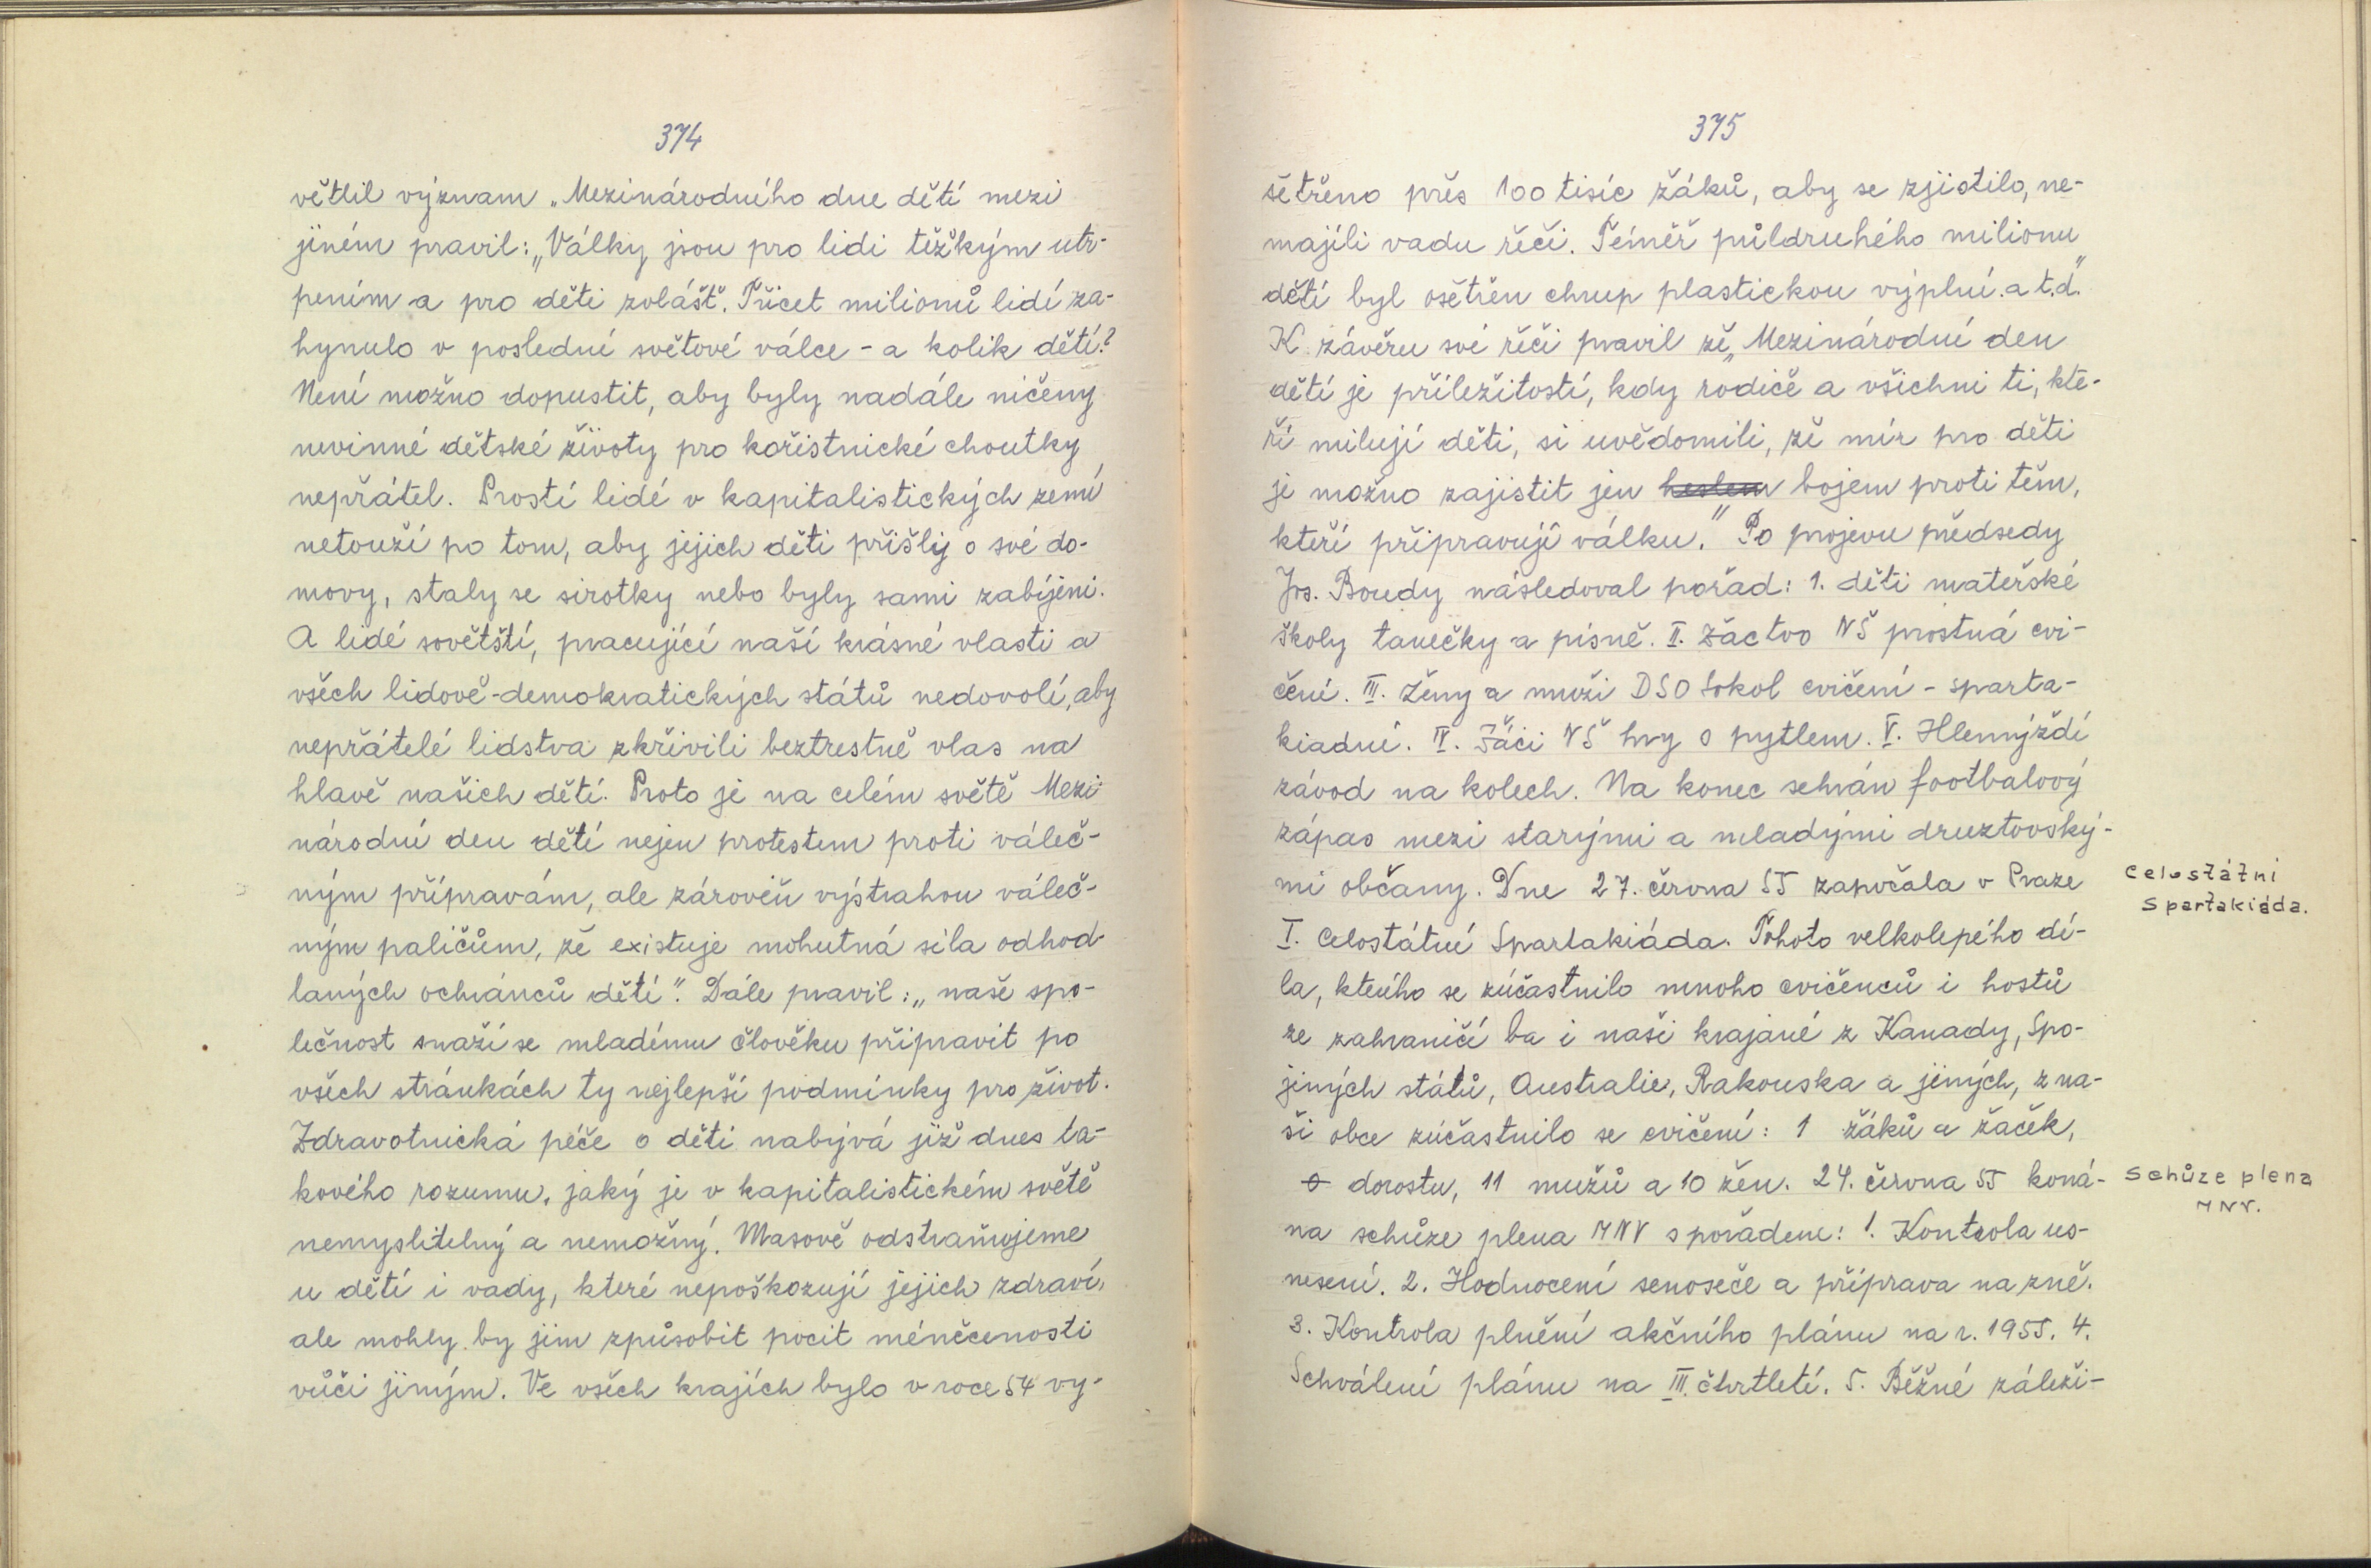 374
větlil význam „Mezinárodního dne dětí mezi
jiném pravil: „Války jsou pro lidi těžkým utr-
pením a pro děti zvlášť. Třicet milionů lidí za-
hynulo v poslední světové válce - a kolik dětí?
Není možno dopustit, aby byly nadále ničeny
nevinné dětské životy pro kořistnické choutky
nepřátel. Prostí lidé v kapitalistických zemí
netouží po tom, aby jejich děti přišly o své do-
movy, staly se sirotky nebo byly sami zabíjeni.
A lidé sovětští, pracující naší krásné vlasti a
všech lidově-demokratických států nedovolí, aby
nepřátelé lidstva zkřivili beztrestně vlas na
hlavě našich dětí. Proto je na celém světě Mezi-
národní den dětí nejen protestem proti váleč-
ným přípravám, ale zároveň výstrahou váleč-
ným paličům, že existuje mohutná síla odhod-
laných ochránců dětí". Dále pravil: „naše spo-
lečnost snaží se mladému člověku připravit po
všech stránkách ty nejlepší podmínky pro život.
Zdravotnická péče o děti nabývá již dnes ta-
kového rozumu, jaký je v kapitalistickém světě
nemyslitelný a nemožný. Masově odstraňujeme
u dětí i vady, které nepoškozují jejich zdraví,
ale mohly by jim způsobit pocit méněcenosti
vůči jiným. Ve všech krajích bylo v roce 54 vy-
375
šetřeno přes 100 tisíc žáků, aby se zjistilo, ne-
majíli vadu řeči. Téměř půldruhého milionu
dětí byl ošetřen chrup plastickou výplní. a t.d."
K závěru své řeči pravil že „Mezinárodní den
dětí je příležitostí, kdy rodiče a všichni ti, kte-
ří milují děti, si uvědomili, že mír pro děti
je možno zajistit jen heslem bojem proti těm,
kteří připravují válku." Po projevu předsedy
Jos. Boudy následoval pořad: 1. děti mateřské
školy tanečky a písně. II. Žactvo NŠ prostná cvi-
čení. III. Ženy a muži DSO Sokol cvičení - sparta-
kiadní. IV. Žáci NŠ hry s pytlem. V. Hlemýždí
závod na kolech. Na konec sehrán footbalový
zápas mezi starými a mladými druztovský-
mi občany. Dne 27. června 55 započala v Praze
I. Celostátní Spartakiáda. Tohoto velkolepého dí-
la, kterého se zúčastnilo mnoho cvičenců i hostů
ze zahraničí ba i naši krajané z Kanady, Spo-
jiných států, Australie, Rakouska a jiných, z na-
ší obce zúčastnilo se cvičení: 1 žáků a žaček,
0 dorostu, 11 mužů a 10 žen. 24. června 55 koná-
na schůze plena MNV s pořadem: 1. Kontrola us-
nesení. 2. Hodnocení senoseče a příprava na žně.
3. Kontrola plnění akčního plánu na r. 1955. 4.
Schválení plánu na III. čtvrtletí. 5. Běžné záleži-
Celostátní
Spartakiáda.
Schůze plena
MNV.